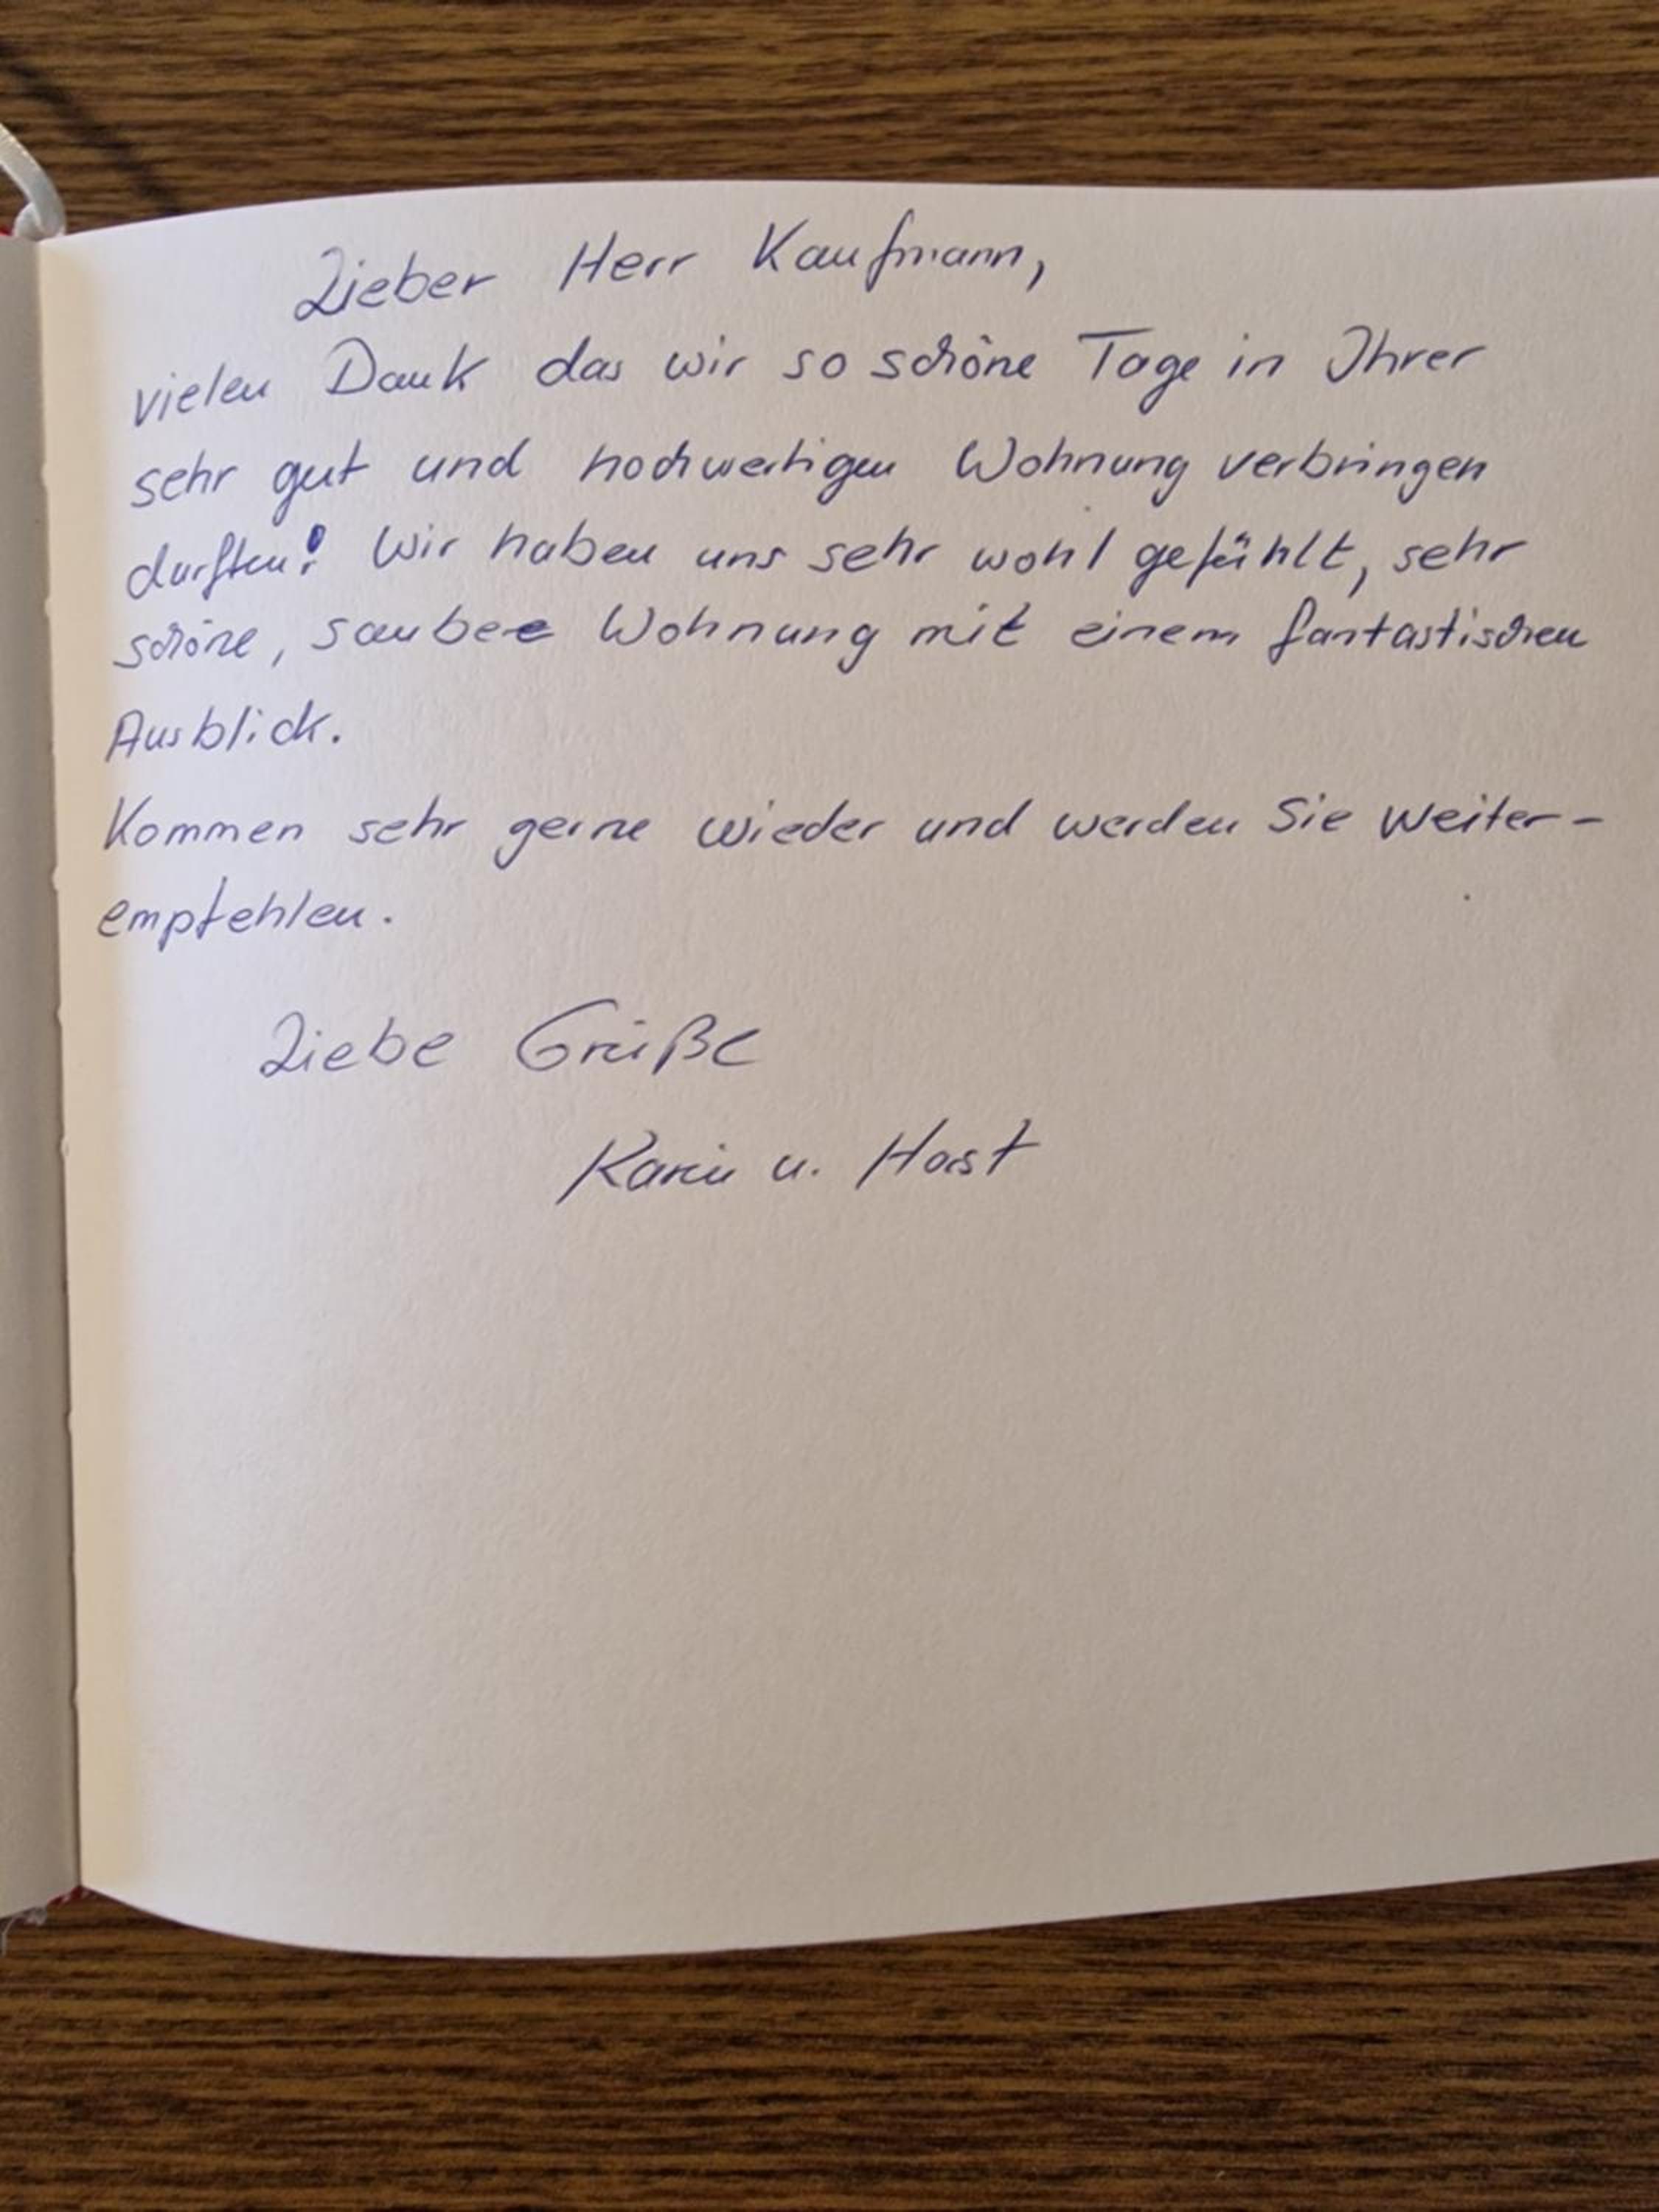 Lieber Herr Kaufmann,
vielen Dank das wir so schöne Tage in Ihrer
sehr gut und hochwertigen Wohnung verbringen
durften! Wir haben uns sehr wohl gefühlt, sehr
schöne, saubere Wohnung mit einem fantastischen
Ausblick.
Kommen sehr gerne wieder und werden Sie weiter-
empfehlen.
Liebe Grüße
Karin u. Horst